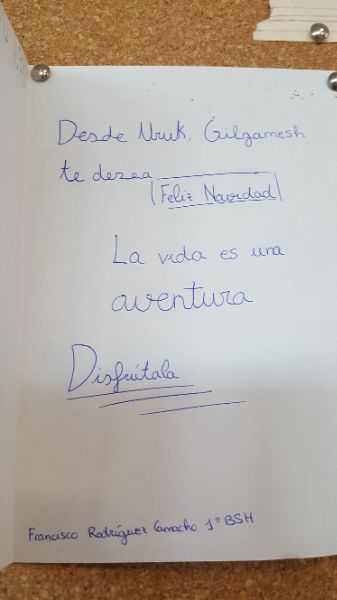 Desde Uruk, Gilgamesh
te desea
Feliz Navidad
La vida es una
aventura
Disfrútala
Francisco Rodríguez Camacho 1º BSH